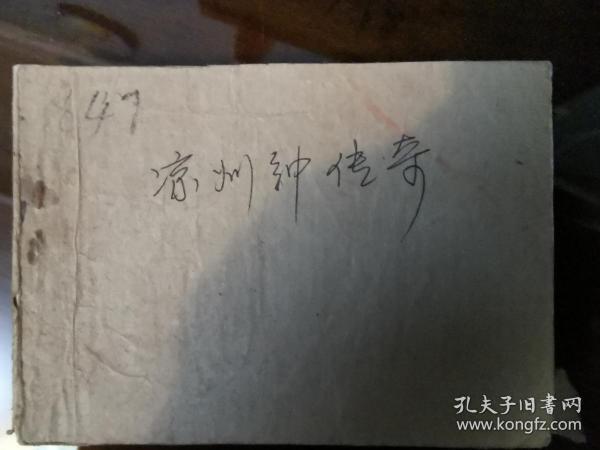 47
凉州钟传奇
孔夫子旧書网
www.kongfz.com